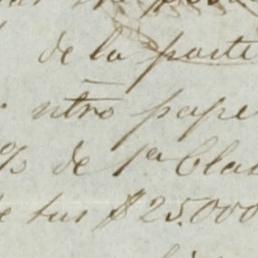 de la parte
ntro pape
% de 1a Clas
de tus $25.000